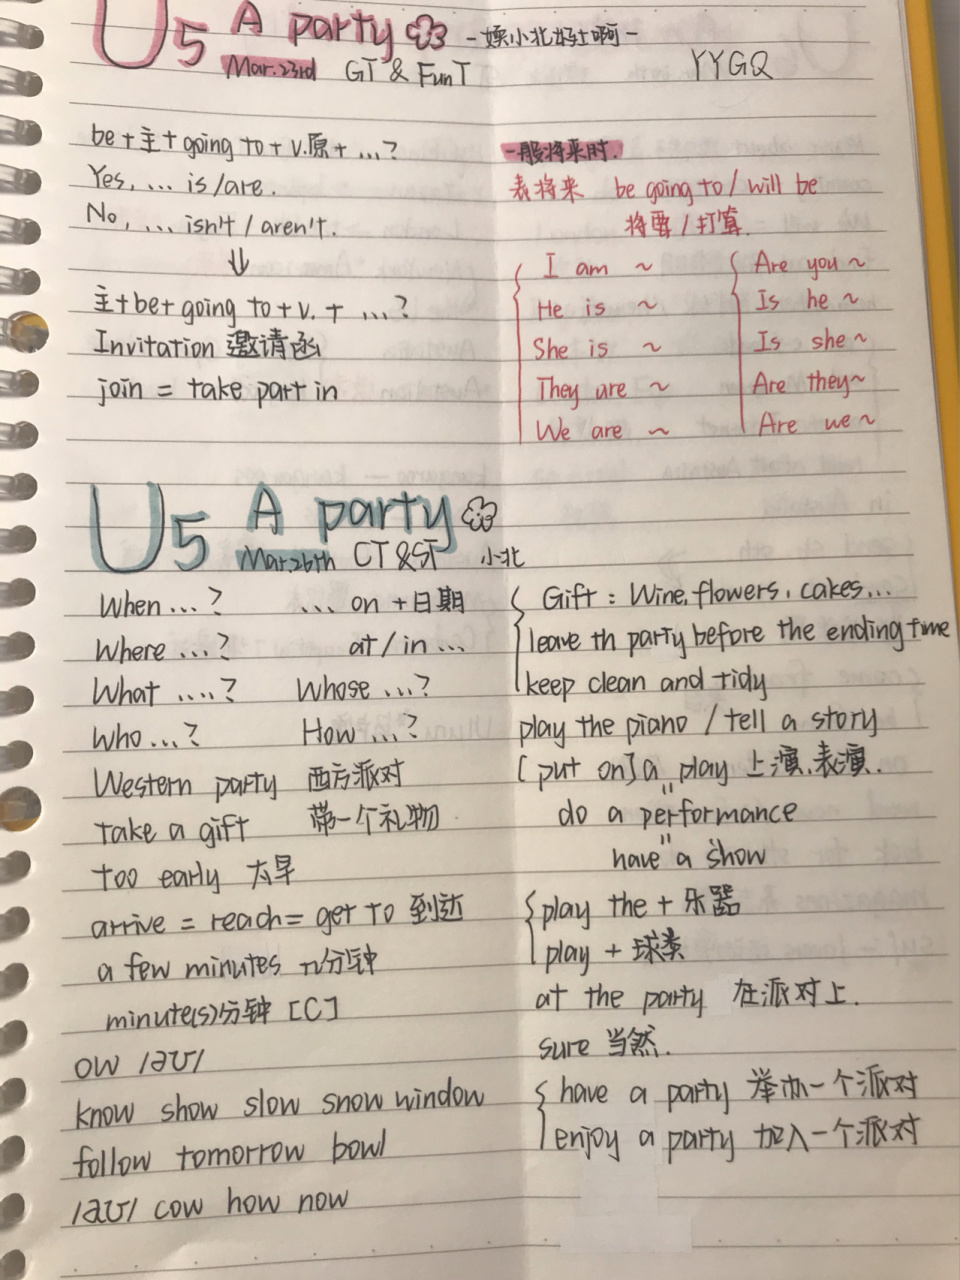 U5 A party -嫒小北好土啊-
Mar.23rd GT & FunT YYGQ
be+主+going to+v.原+...?
Yes, ... is/are.
No, ... isn't / aren't.
↓
主+be+going to+v.+ ...?
Invitation 邀请函
join = take part in
一般将来时.
表将来 be going to / will be
将要 / 打算.
I am ~ Are you ~
He is ~ Is he ~
She is ~ Is she ~
They are ~ Are they~
We are ~ Are we ~
U5 A party
Mar.26th CT & ST 小北
When ...? ... on +日期
Where ...? at / in ...
What ....? Whose ...?
Who ...? How ...?
Western party 西方派对
take a gift 带一个礼物
too early 太早
arrive = reach = get to 到达
a few minutes 几分钟
minute(s)分钟 [C]
ow /əʊ/
know show slow snow window
follow tomorrow bowl
/aʊ/ cow how now
Gift : Wine, flowers, cakes...
leave th party before the ending time
keep clean and tidy
play the piano / tell a story
[put on] a play 上演、表演.
"
do a performance
"
have a show
play the + 乐器
play + 球类
at the party 在派对上.
sure 当然.
have a party 举办一个派对
enjoy a party 加入一个派对